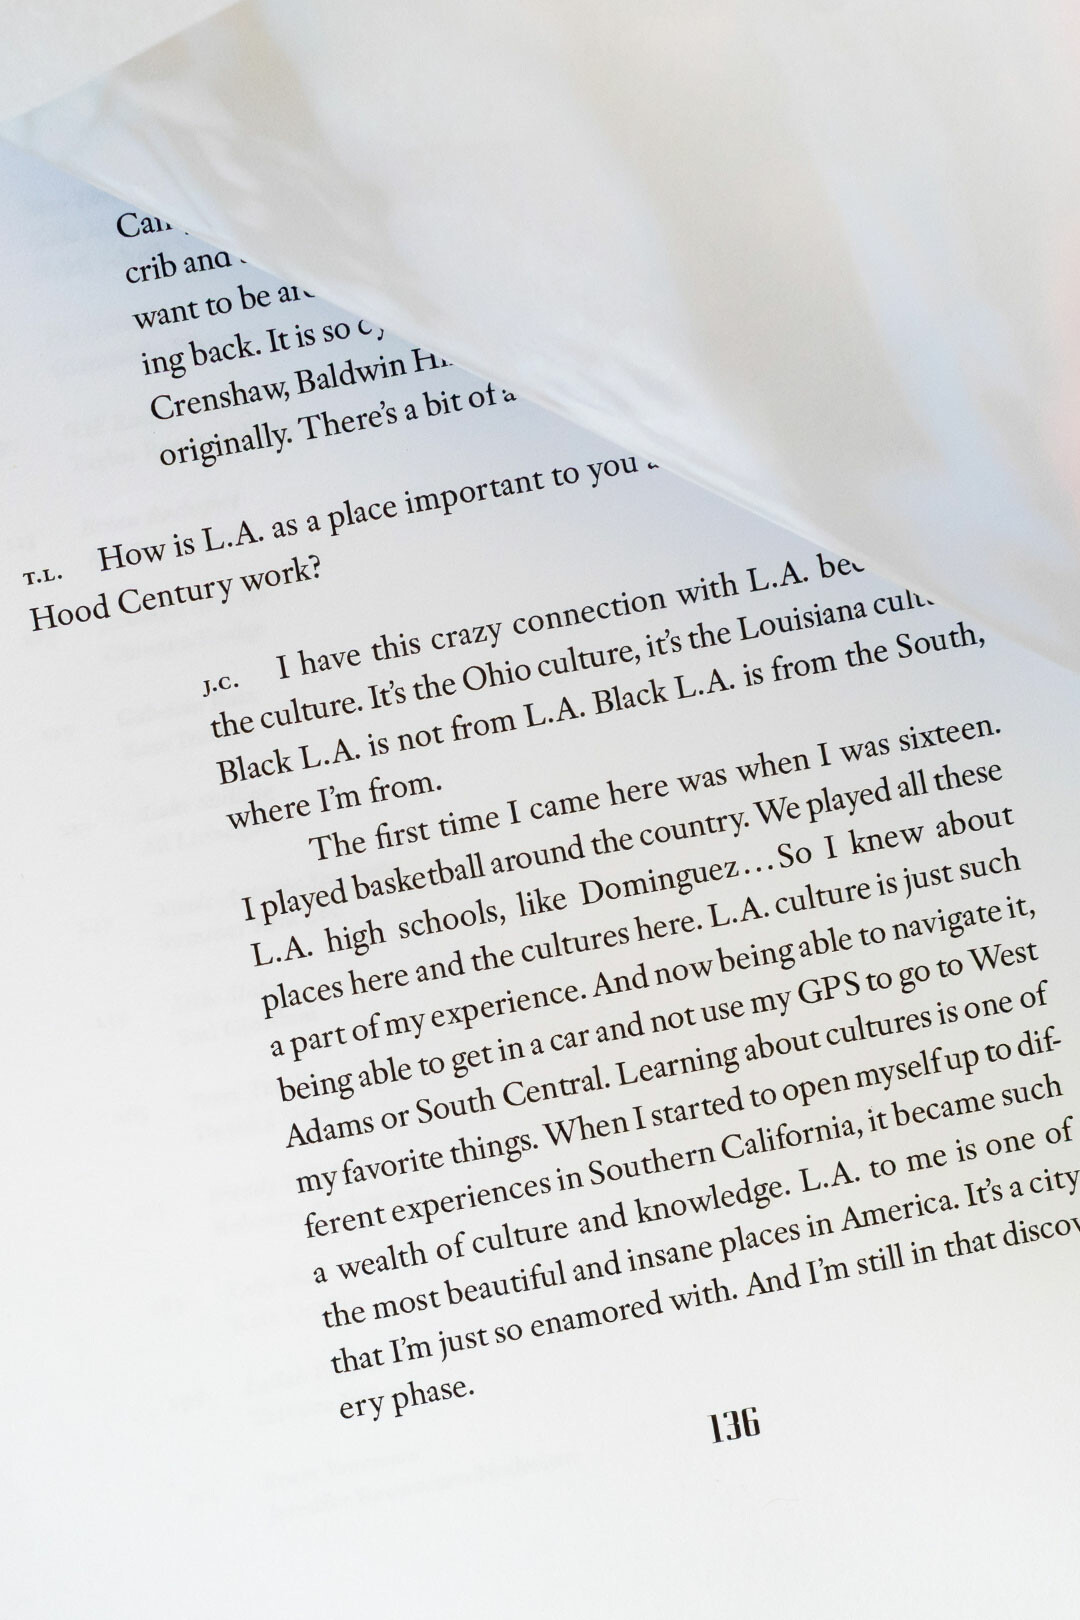 crib and
want to be
ing back. It is so
Crenshaw, Baldwin
originally. There's a bit of a
T.L. How is L.A. as a place important to you
Hood Century work?
J.C. I have this crazy connection with L.A.
the culture. It's the Ohio culture, it's the Louisiana
Black L.A. is not from L.A. Black L.A. is from the South,
where I'm from.
The first time I came here was when I was sixteen.
I played basketball around the country. We played all these
L.A. high schools, like Dominguez...So I knew about
places here and the cultures here. L.A. culture is just such
a part of my experience. And now being able to navigate it,
being able to get in a car and not use my GPS to go to West
Adams or South Central. Learning about cultures is one of
my favorite things. When I started to open myself up to dif-
ferent experiences in Southern California, it became such
a wealth of culture and knowledge. L.A. to me is one of
the most beautiful and insane places in America. It's a city
that I'm just so enamored with. And I'm still in that discov
ery phase.
136